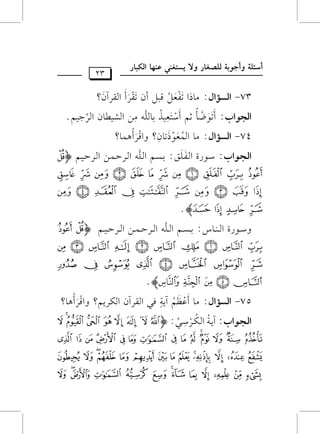 أسئلة وأجوبة للصغار ولا يستغني عنها الكبار
٢٣
٧٣- السؤال: ماذا تَفْعَلُ قبل أن تَقْرَأَ القرآنَ؟
الجواب: أَتَوَضَّأُ ثم أَسْتَعِيذُ باللَّه مِن الشيطان الرَّجيم.
٧٤- السؤال: ما المُعَوِّذَتانِ؟ واقْرَأْهما؟
الجواب: سورة الفَلَق: بسم اللَّه الرحمن الرحيم ﴿قُلْ
أَعُوذُ بِرَبِّ ٱلْفَلَقِ ۝١ مِن شَرِّ مَا خَلَقَ ۝٢ وَمِن شَرِّ غَاسِقٍ
إِذَا وَقَبَ ۝٣ وَمِن شَرِّ ٱلنَّفَّٰثَٰتِ فِى ٱلْعُقَدِ ۝٤ وَمِن
شَرِّ حَاسِدٍ إِذَا حَسَدَ﴾.
وسورة الناس: بسم اللَّه الرحمن الرحيم ﴿قُلْ أَعُوذُ
بِرَبِّ ٱلنَّاسِ ۝١ مَلِكِ ٱلنَّاسِ ۝٢ إِلَٰهِ ٱلنَّاسِ ۝٣ مِن
شَرِّ ٱلْوَسْوَاسِ ٱلْخَنَّاسِ ۝٤ ٱلَّذِى يُوَسْوِسُ فِى صُدُورِ
ٱلنَّاسِ ۝٥ مِنَ ٱلْجِنَّةِ وَٱلنَّاسِ﴾.
٧٥- السؤال: ما أَعْظَمُ آيَةٍ في القرآن الكريم؟ واقْرَأْها؟
الجواب: آيةُ الكُرْسِيِّ: ﴿ٱللَّهُ لَآ إِلَٰهَ إِلَّا هُوَ ٱلْحَىُّ ٱلْقَيُّومُ لَا
تَأْخُذُهُۥ سِنَةٌ وَلَا نَوْمٌ لَّهُۥ مَا فِى ٱلسَّمَٰوَٰتِ وَمَا فِى ٱلْأَرْضِ مَن ذَا ٱلَّذِى
يَشْفَعُ عِندَهُۥٓ إِلَّا بِإِذْنِهِۦ يَعْلَمُ مَا بَيْنَ أَيْدِيهِمْ وَمَا خَلْفَهُمْ وَلَا يُحِيطُونَ
بِشَىْءٍ مِّنْ عِلْمِهِۦٓ إِلَّا بِمَا شَآءَ وَسِعَ كُرْسِيُّهُ ٱلسَّمَٰوَٰتِ وَٱلْأَرْضَ وَلَا